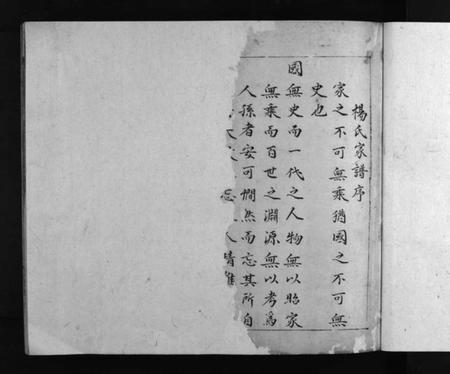 楊氏家譜序
家之不可無乘猶國之不可無
史也
國無史而一代之人物無以昭家
無乘而百世之淵源無以考爲
人孫者安可憪然而忘其所自
忘 人